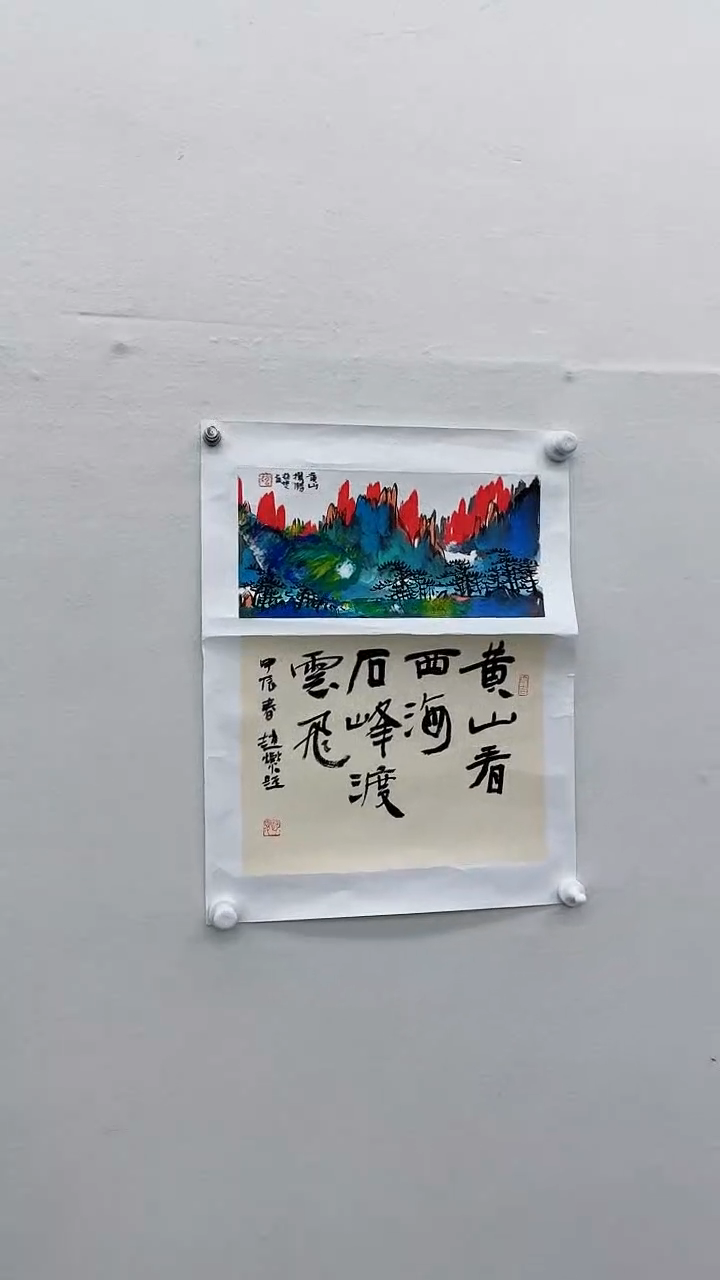 黄山
黄山看
西海
石峰渡
雲飛
甲辰春